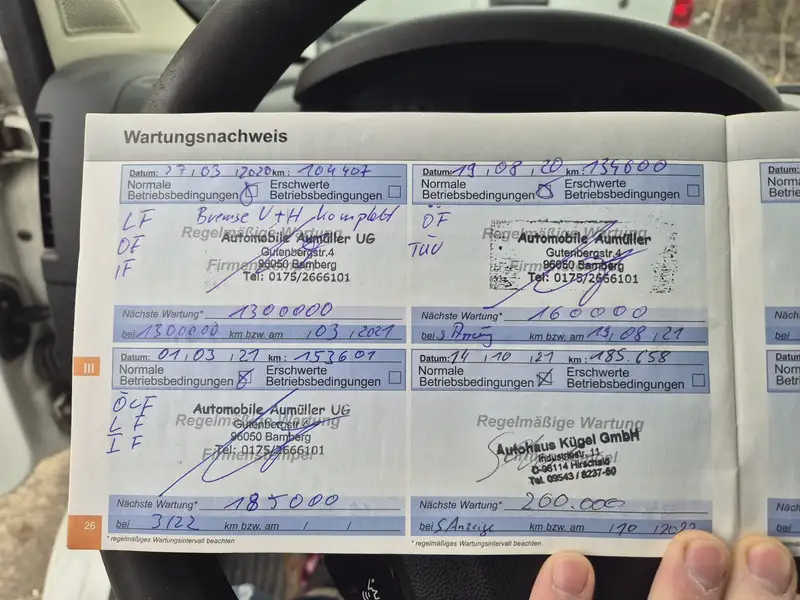 Wartungsnachweis
Datum: 27.03.2020 km: 104407
Normale Betriebsbedingungen
Erschwerte Betriebsbedingungen
LF Bremse V+H komplett
ÖF
IF
Regelmäßige Wartung
Automobile Aumüller UG
Gutenbergstr.4
96050 Bamberg
Tel: 0175/2666101
Nächste Wartung* 1300000
bei 1300000 km bzw. am /03/2021
Datum: 19.08.20 km: 134600
Normale Betriebsbedingungen
Erschwerte Betriebsbedingungen
ÖF
TÜV
Regelmäßige Wartung
Automobile Aumüller
Gutenbergstr.4
96050 Bamberg
Tel: 0175/2666101
Nächste Wartung* 160000
bei km bzw. am 19/08/21
III
Datum: 01.03.21 km: 153601
Normale Betriebsbedingungen
Erschwerte Betriebsbedingungen
LF
IF
Regelmäßige Wartung
Firmenstempel
Automobile Aumüller UG
96050 Bamberg
Tel: 0175/2666101
Nächste Wartung* 185000
bei 3/22 km bzw. am / /
Datum: 14.10.21 km: 185.658
Normale Betriebsbedingungen
Erschwerte Betriebsbedingungen
Regelmäßige Wartung
Autohaus Kügel GmbH
Industriestr. 11
D-96114 Hirschaid
Tel. 09543 / 8237-80
Nächste Wartung* 200.000
bei S.Anzeige km bzw. am /10/2022
26
* regelmäßiges Wartungsintervall beachten
* regelmäßiges Wartungsintervall beachten